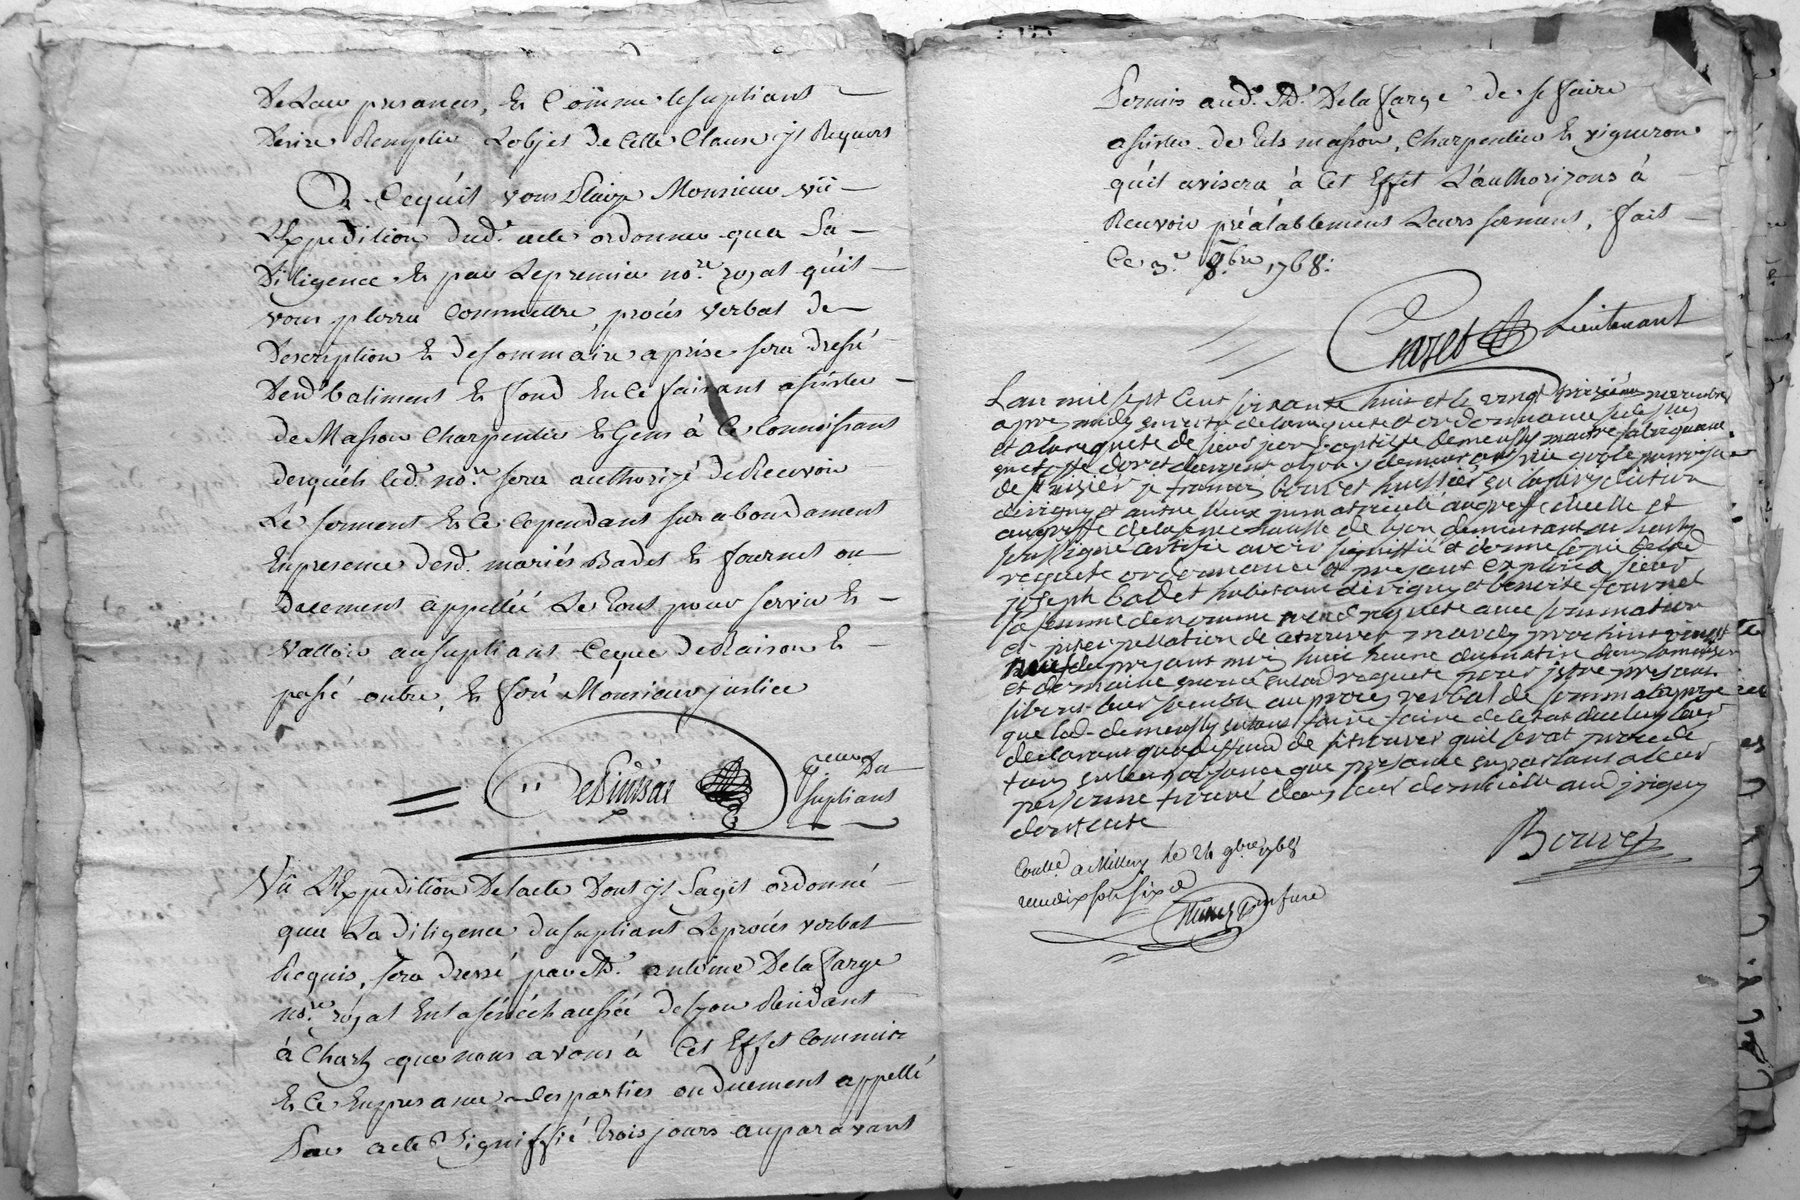 De Leur presances, Et Comme le supliant
Desire Remplir L'objet De Cette Clause jl Requers
A Cequ'il vous Plaize Monsieur vû
L'Expedition dud. acte ordonner que a Sa
Diligence Et par Le premier no.re royal qu'il
vous plerra Commettre, procés verbal de
Description Et de sommaire aprise sera dressé
Desd. batiment Et fond En Ce faisant assister
de Masson Charpentier Et Gens à Ce Connoissant
desquels led. no.re sera authorizé De Recevoir
Le serment Et Ce Cependant surabondament
En presence desd. mariés Badet Et fournel ou
Duement appellée Le Tout pour servir Et
Valloir au supliant Ceque De Raison Et
passé outre, Et feré Monsieur justice
procureur Du
supliant
Vû L'Expedition De lacte Dont jl Sagit ordonné
que La Diligence Du supliant Le procés verbal
Requis, sera Dressé par M. antoine Delafarge
no.re royal En la sénéchaussée de Lyon Residant
à Charly que nous avons à Cet Effet Commis
Et Ce En presance des parties ou duement appellé
Par acte Signiffié trois jours auparavant
Permis aud. M. Delafarge de se faire
assister de tels masson, Charpentier Et vigneron
qu'il avisera à Cet Effet L'authorizons à
Recevoir préalablement Leurs serment, fait
Ce 3.e 8.bre 1768.
Lieutenant
Lan mil sept Cent soixante huit et le vingt troisième novembre
apres midy en vertu de la requete et ordonnance susd.
et a la requete de sieur jean baptiste demeussy maitre fabriquant
en etoffe dor et dargent a lyon y demeurant rue paroisse
de st nizier je francois bouvet huissier en la jurisdiction
dirigny et autre lieux jmmatriculé au greffe dicelle et
au greffe de la senechaussée de lyon demeurant au
soussigné certifie avoir signiffié et donné copie de lad
requete ordonnance et presant exploit a sieur
joseph badet habitant dirigny et benoite fournel
sa femme denommé en lad requete avec sommation
et jnterpellation de se trouver mardy prochain vingt
neuf du presant mois huit heure du matin dans la maison
et domaine enoncé en lad requete pour jetre presant
si bon leur semble au procés verbal de sommaire aprise
que led demeussy entend faire faire de letat dicelluy leur
declarant qua deffaud de sitrouver quil serat procedé
tant en leur absance que presance en parlant a leur
personne trouvé dans leur domicille aud jrigny
dont acte
Bouvet
Contlé a Millery le 24 9bre 1768
reçu dix sols six d